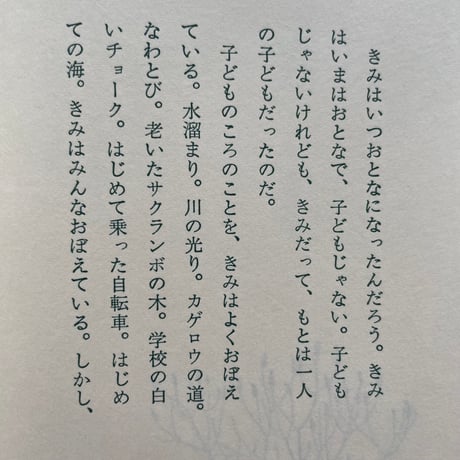 きみはいつおとなになったんだろう。きみ
はいまはおとなで、子どもじゃない。子ども
じゃないけれども、きみだって、もとは一人
の子どもだったのだ。
子どものころのことを、きみはよくおぼえ
ている。水溜まり。川の光り。カゲロウの道。
なわとび。老いたサクランボの木。学校の白
いチョーク。はじめて乗った自転車。はじめ
ての海。きみはみんなおぼえている。しかし、